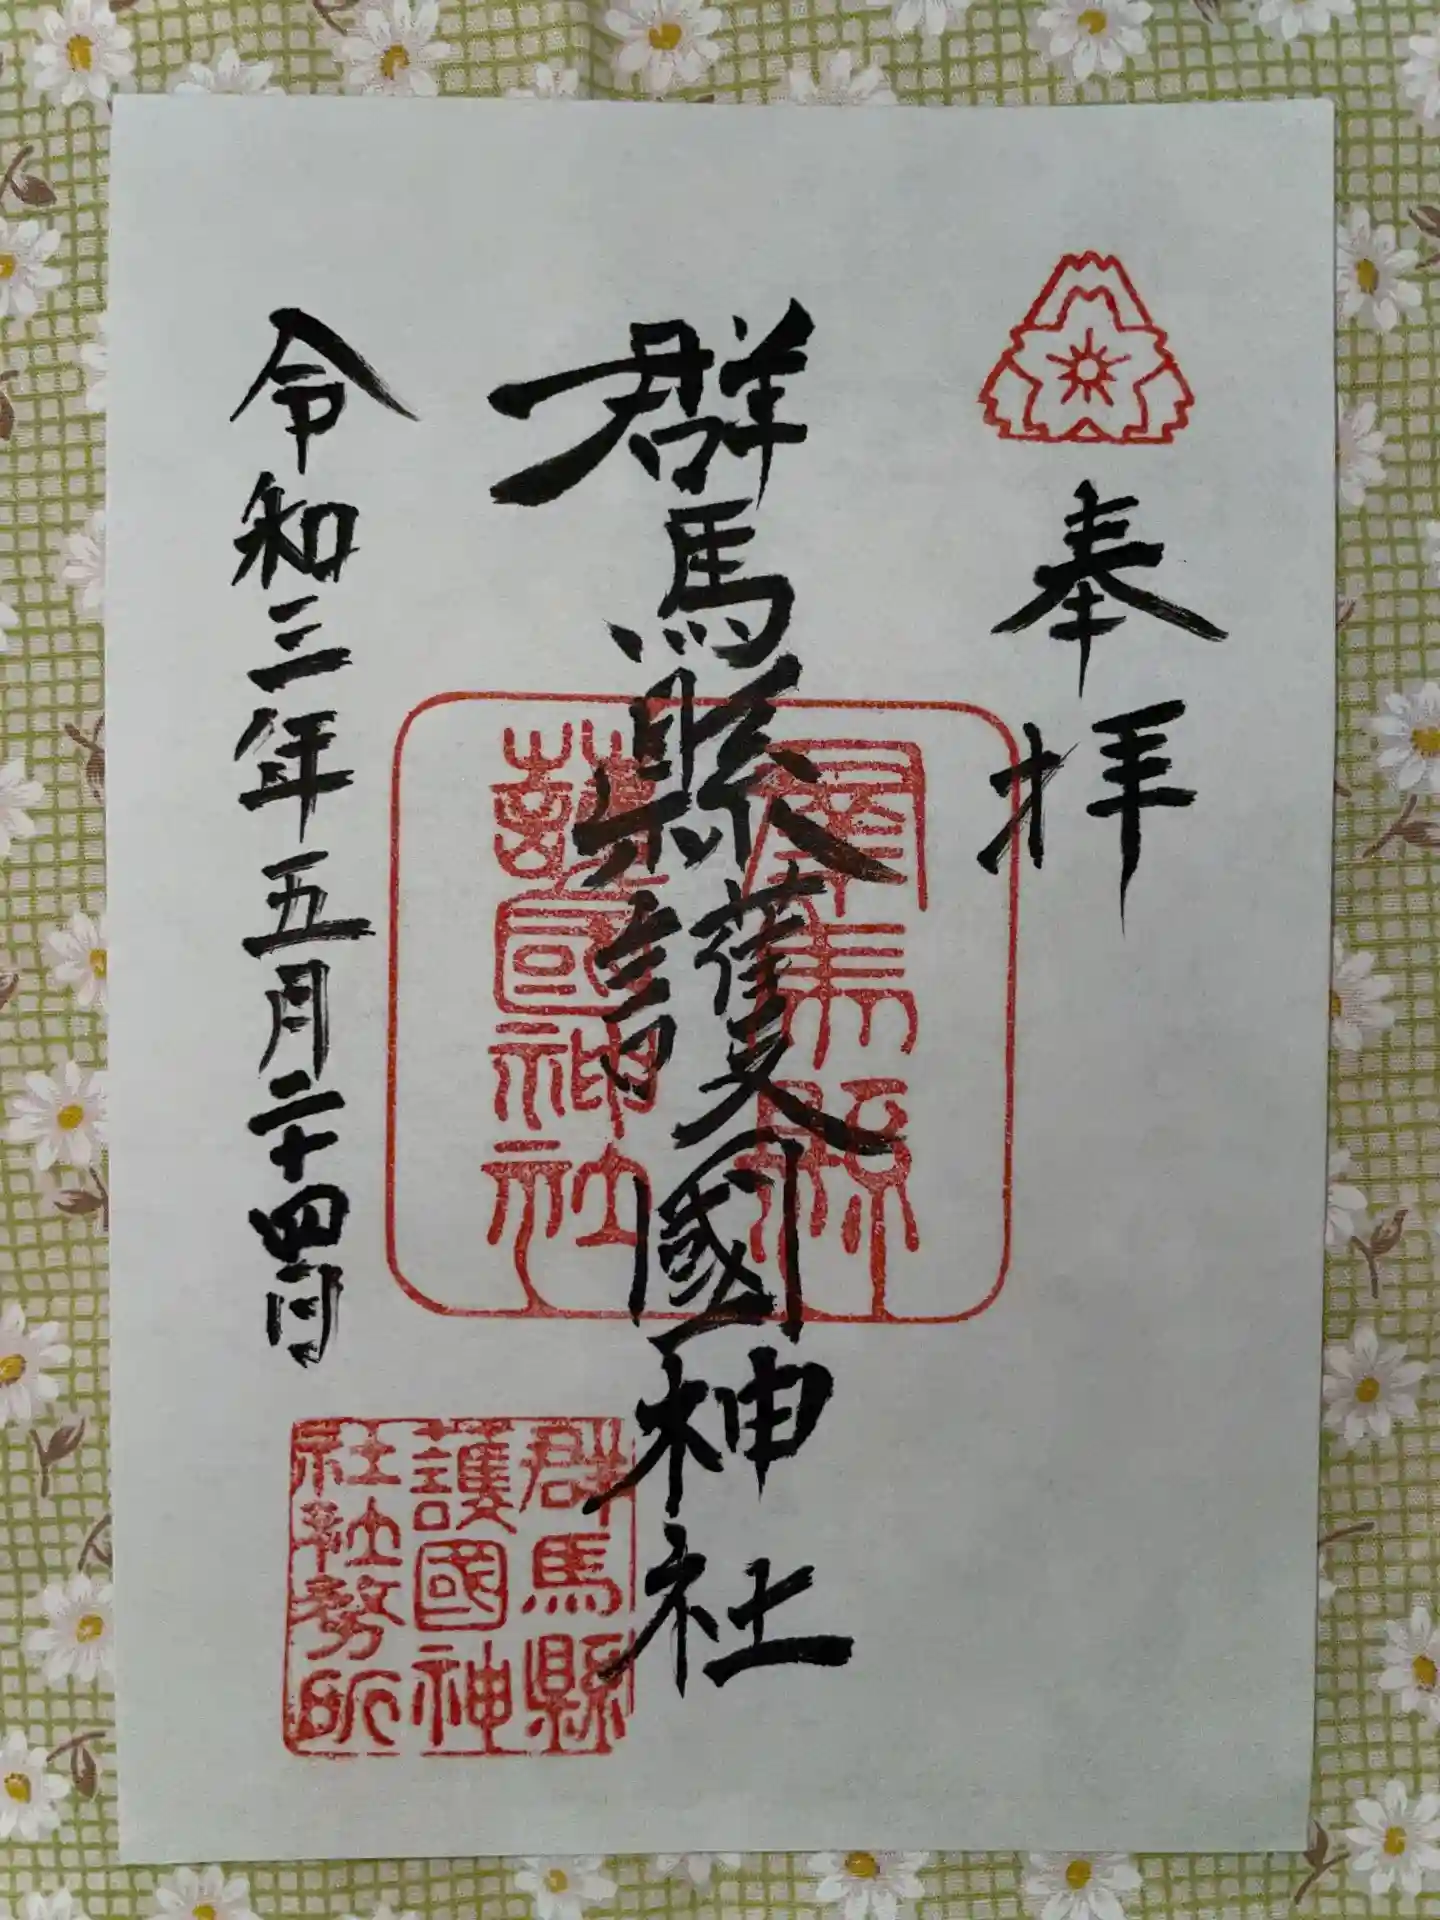 奉拝
群馬縣護國神社
群馬縣
護國神社
令和三年五月二十四日
群馬縣
護國神
社社務所